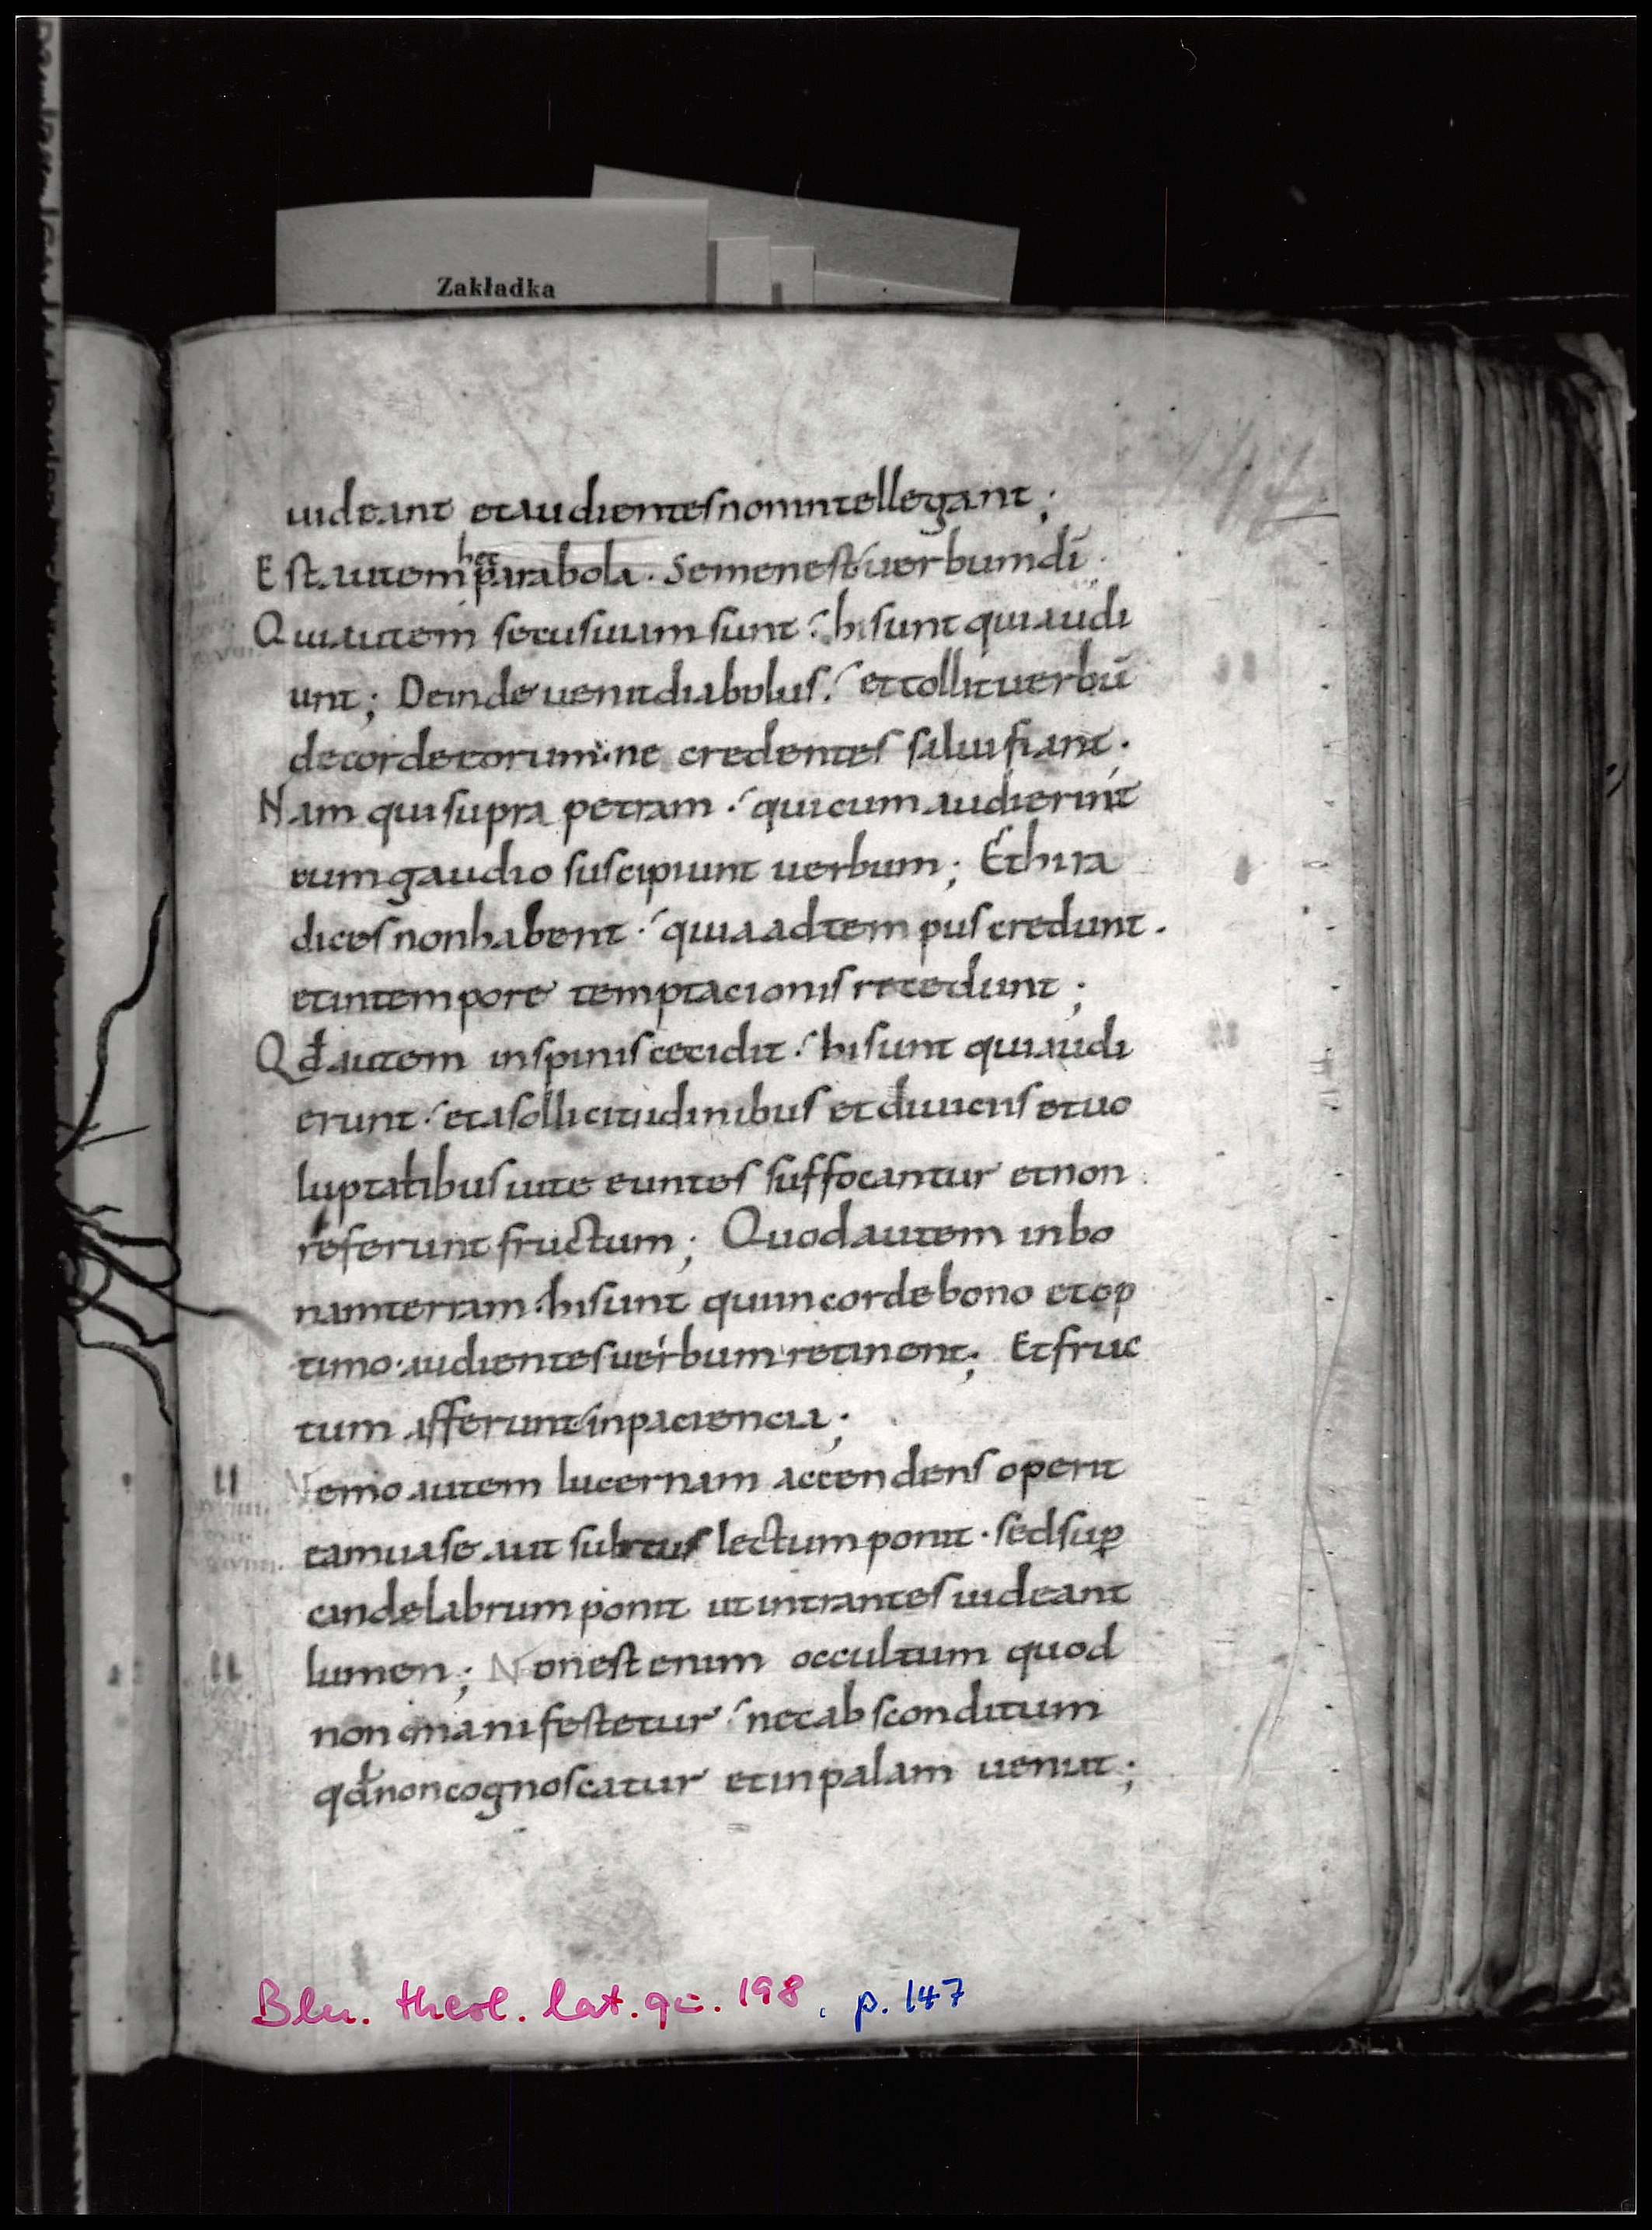 Zakładka
uideant et audientes non intellegant;
Est autem hec parabola. Semen est uerbum dī.
Qui autem secus uiam sunt. hi sunt qui audi
unt; Deinde uenit diabolus. et tollit uerbū
de corde eorum. ne credentes salui fiant.
Nam qui supra petram. qui cum audierint
cum gaudio suscipiunt uerbum; Et hi ra
dices non habent. qui a ad tempus credunt.
et in tempore temptacionis recedunt;
Qđ autem in spinis cecidit. hi sunt qui audi
erunt. et a sollicitudinibus et diuiciis et uo
luptatibus uite euntes suffocantur et non
referunt fructum; Quod autem in bo
nam terram. hi sunt qui in corde bono et op
timo. audientes uerbum retinent; Et fruc
tum afferunt in paciencia;
II Nemo autem lucernam accendens operit
eam uase aut subtus lectum ponit. sed suꝑ
candelabrum ponit ut intrantes uideant
II lumen; Non est enim occultum quod
non manifestetur. nec absconditum
qđ non cognoscatur et in palam ueniat;
Bln. theol. lat. qu. 198, p. 147